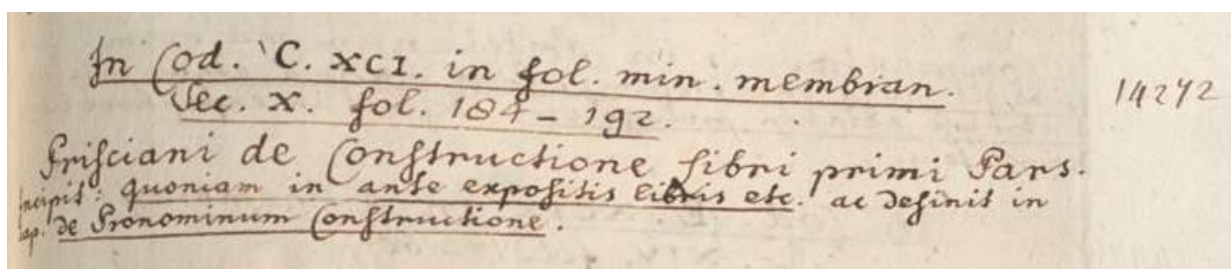 In Cod. C. XCI. in fol. min. membran.
Sec. X. fol. 184 – 192.
14272
Prisciani de Constructione libri primi Pars.
incipit: quoniam in ante expositis libris etc. ac desinit in
cap. de Pronominum Constructione.